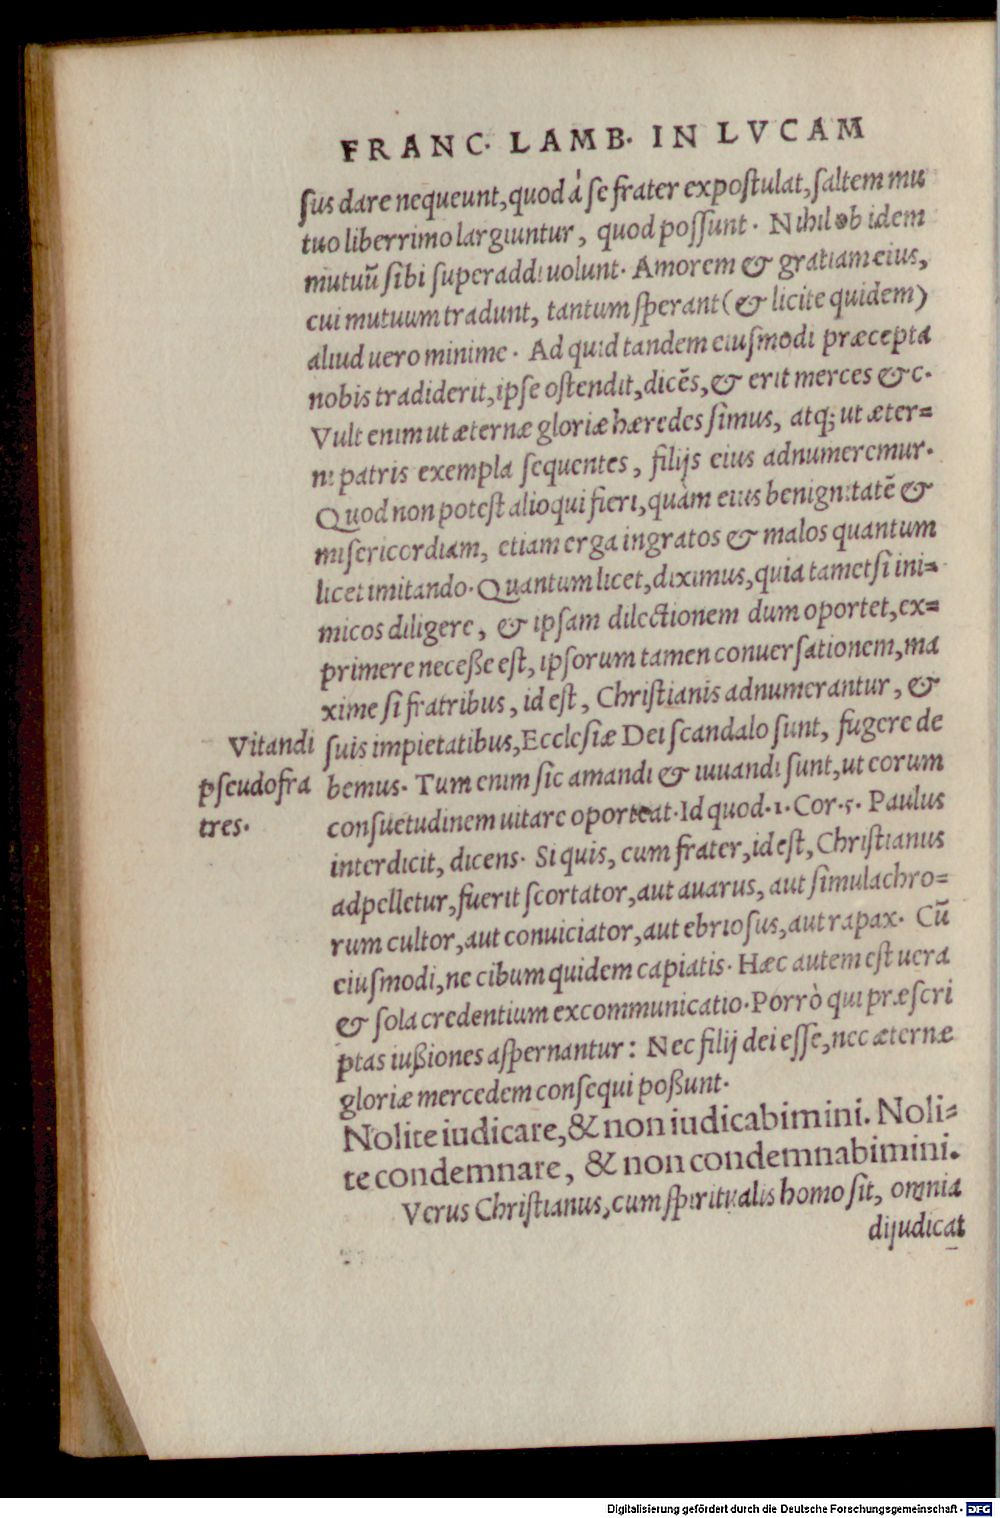 FRANC. LAMB. IN LVCAM
sus dare nequeunt, quod à se frater expostulat, saltem mu
tuo liberrimo largiuntur, quod possunt. Nihil ob idem
mutuũ sibi superaddi uolunt. Amorem & gratiam eius,
cui mutuum tradunt, tantum sperant (& licite quidem)
aliud uero minime. Ad quid tandem eiusmodi præcepta
nobis tradiderit, ipse ostendit, dicẽs, & erit merces & c.
Vult enim ut æternæ gloriæ hæredes simus, atq; ut æter=
ni patris exempla sequentes, filijs eius adnumeremur.
Quod non potest alioqui fieri, quàm eius benignitatẽ &
misericordiam, etiam erga ingratos & malos quantum
licet imitando. Quantum licet, diximus, quia tametsi ini=
micos diligere, & ipsam dilectionem dum oportet, ex=
primere neceße est, ipsorum tamen conuersationem, ma
xime si fratribus, id est, Christianis adnumerantur, &
suis impietatibus, Ecclesiæ Dei scandalo sunt, fugere de
bemus. Tum enim sic amandi & iuuandi sunt, ut eorum
consuetudinem uitare oporteat. Id quod .1. Cor. 5. Paulus
interdicit, dicens. Si quis, cum frater, id est, Christianus
adpelletur, fuerit scortator, aut auarus, aut simulachro=
rum cultor, aut conuiciator, aut ebriosus, aut rapax. Cũ
eiusmodi, ne cibum quidem capiatis. Hæc autem est uera
& sola credentium excommunicatio. Porrò qui præscri
ptas iußiones aspernantur: Nec filij dei esse, nec æternæ
gloriæ mercedem consequi poßunt.
Nolite iudicare, & non iudicabimini. Noli=
te condemnare, & non condemnabimini.
Verus Christianus, cum spiritualis homo sit, omnia
dijudicat
Vitandi
pseudofra
tres.
Digitalisierung gefördert durch die Deutsche Forschungsgemeinschaft - DFG